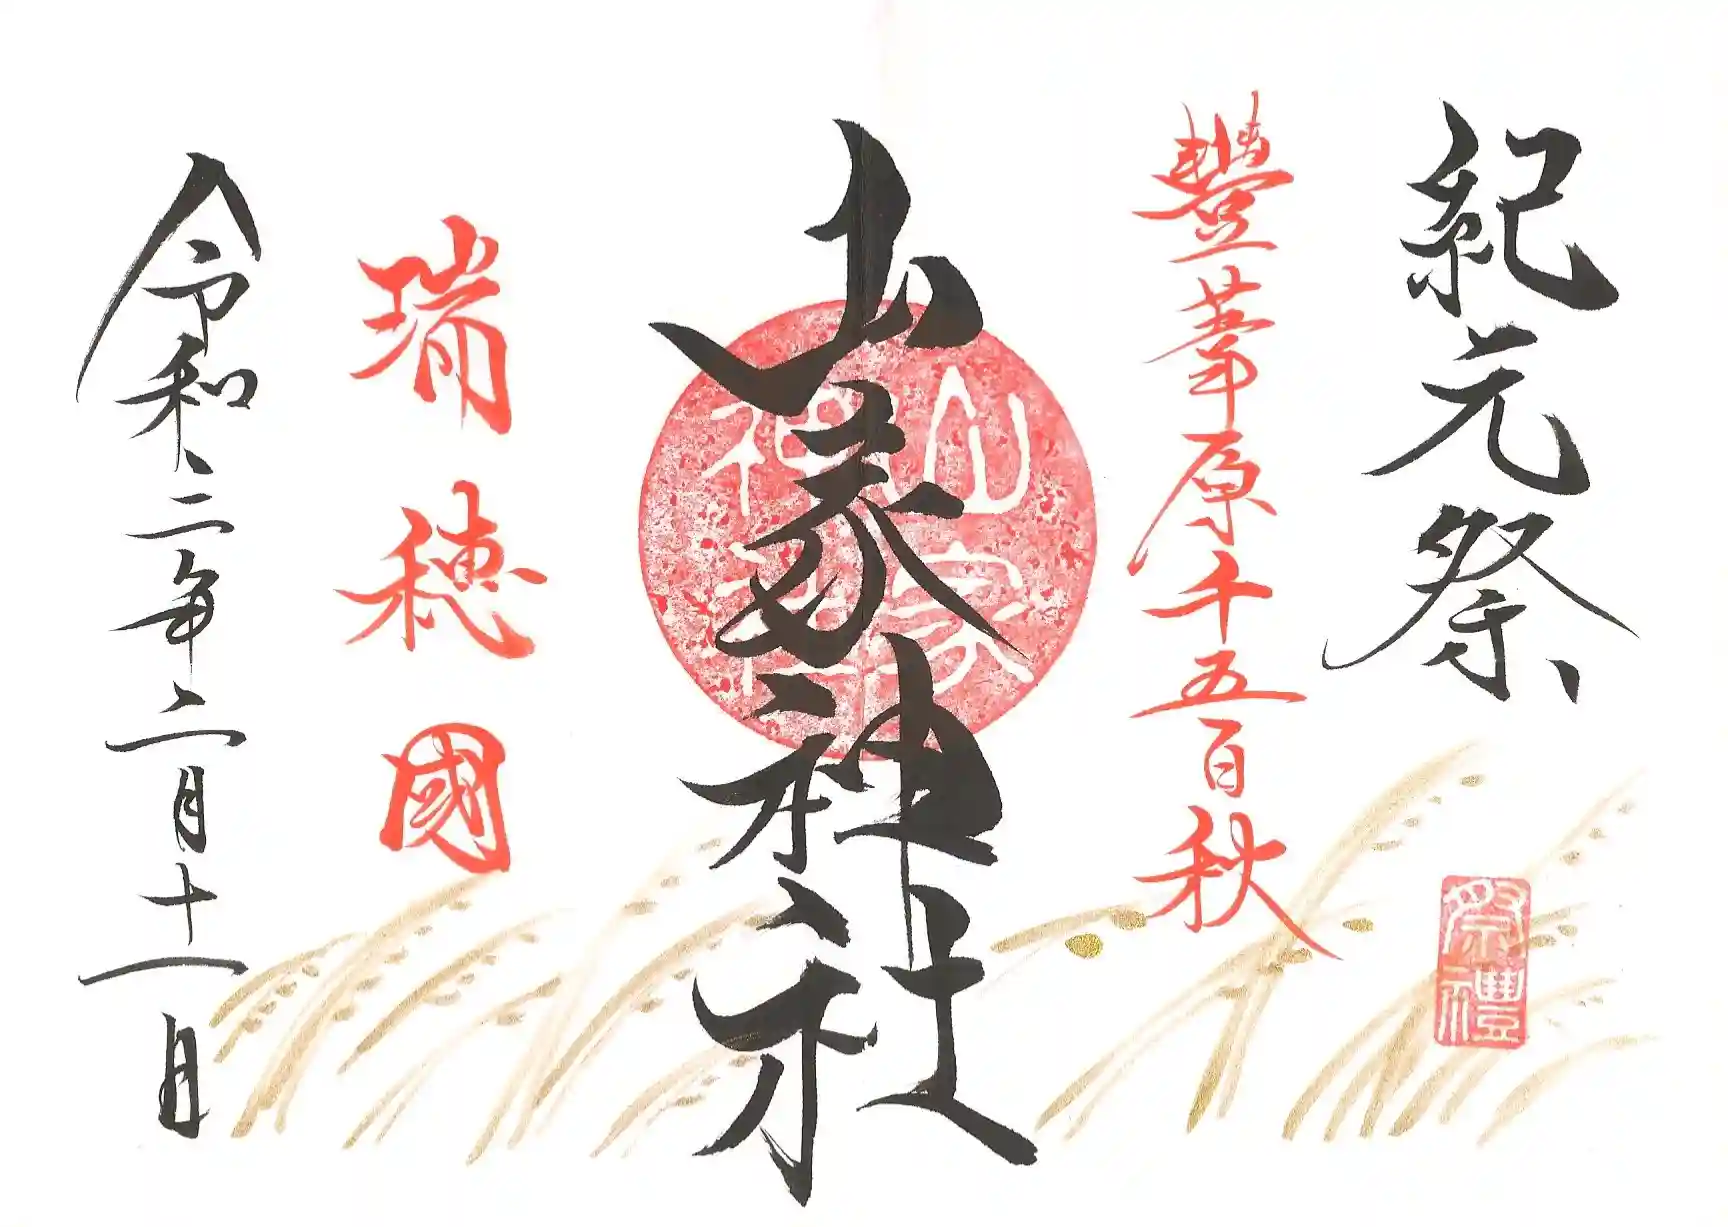 紀元祭
豐葦原千五百秋
山家神社
瑞穂國
令和三年二月十一日
山家神社
祭禮